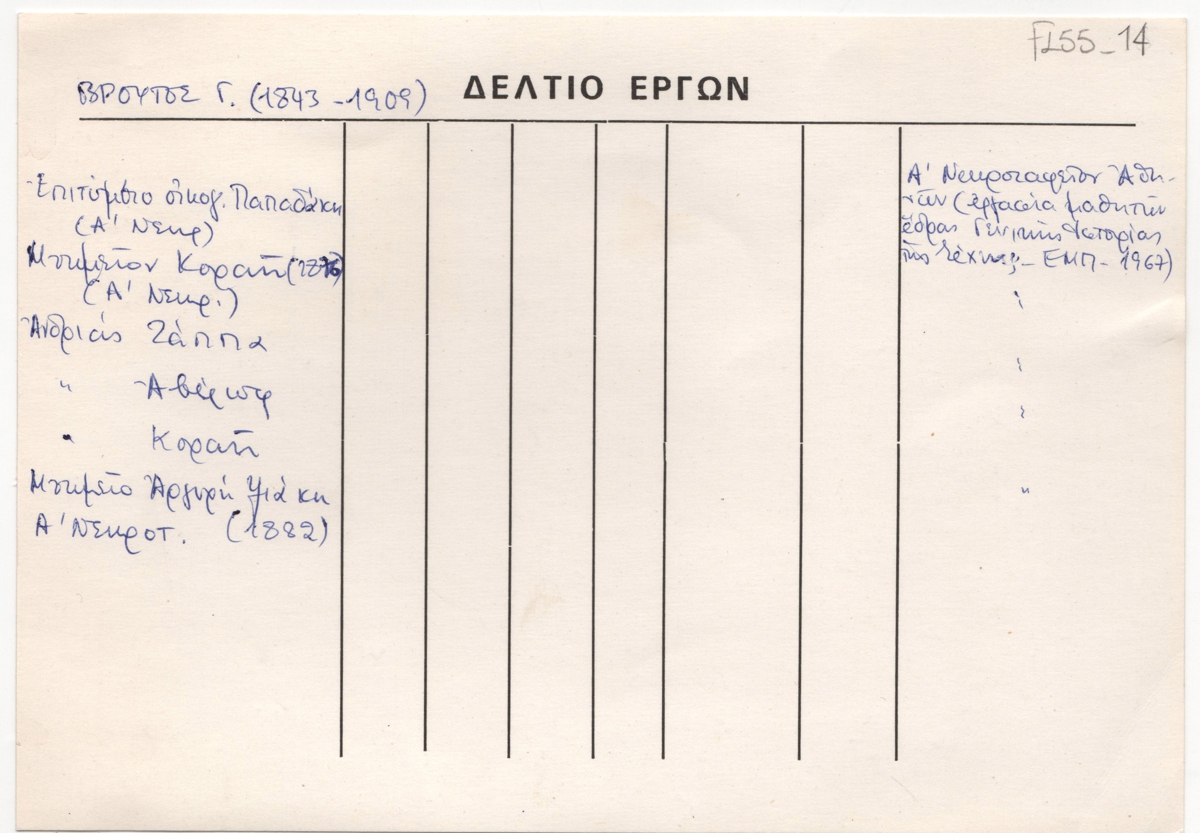 FL55_14
ΒΡΟΥΤΟΣ Γ. (1843 - 1909) ΔΕΛΤΙΟ ΕΡΓΩΝ
Ἐπιτύμβιο οἰκογ. Παπαδάκη
(Α' Νεκρ)
Μνημεῖον Κοραῆ (1876)
(Α' Νεκρ.)
Ἀνδριάς Ζάππα
" Ἀβέρωφ
" Κοραῆ
Μνημεῖο Ἀργυρῆ Ψιάκη
Α' Νεκροτ. (1882)
Α' Νεκροταφεῖον Ἀθη-
νῶν (ἐργασία μαθητῶν
ἕδρας Γενικῆς Ἱστορίας
τῆς τέχνης - ΕΜΠ - 1967)
"
"
"
"